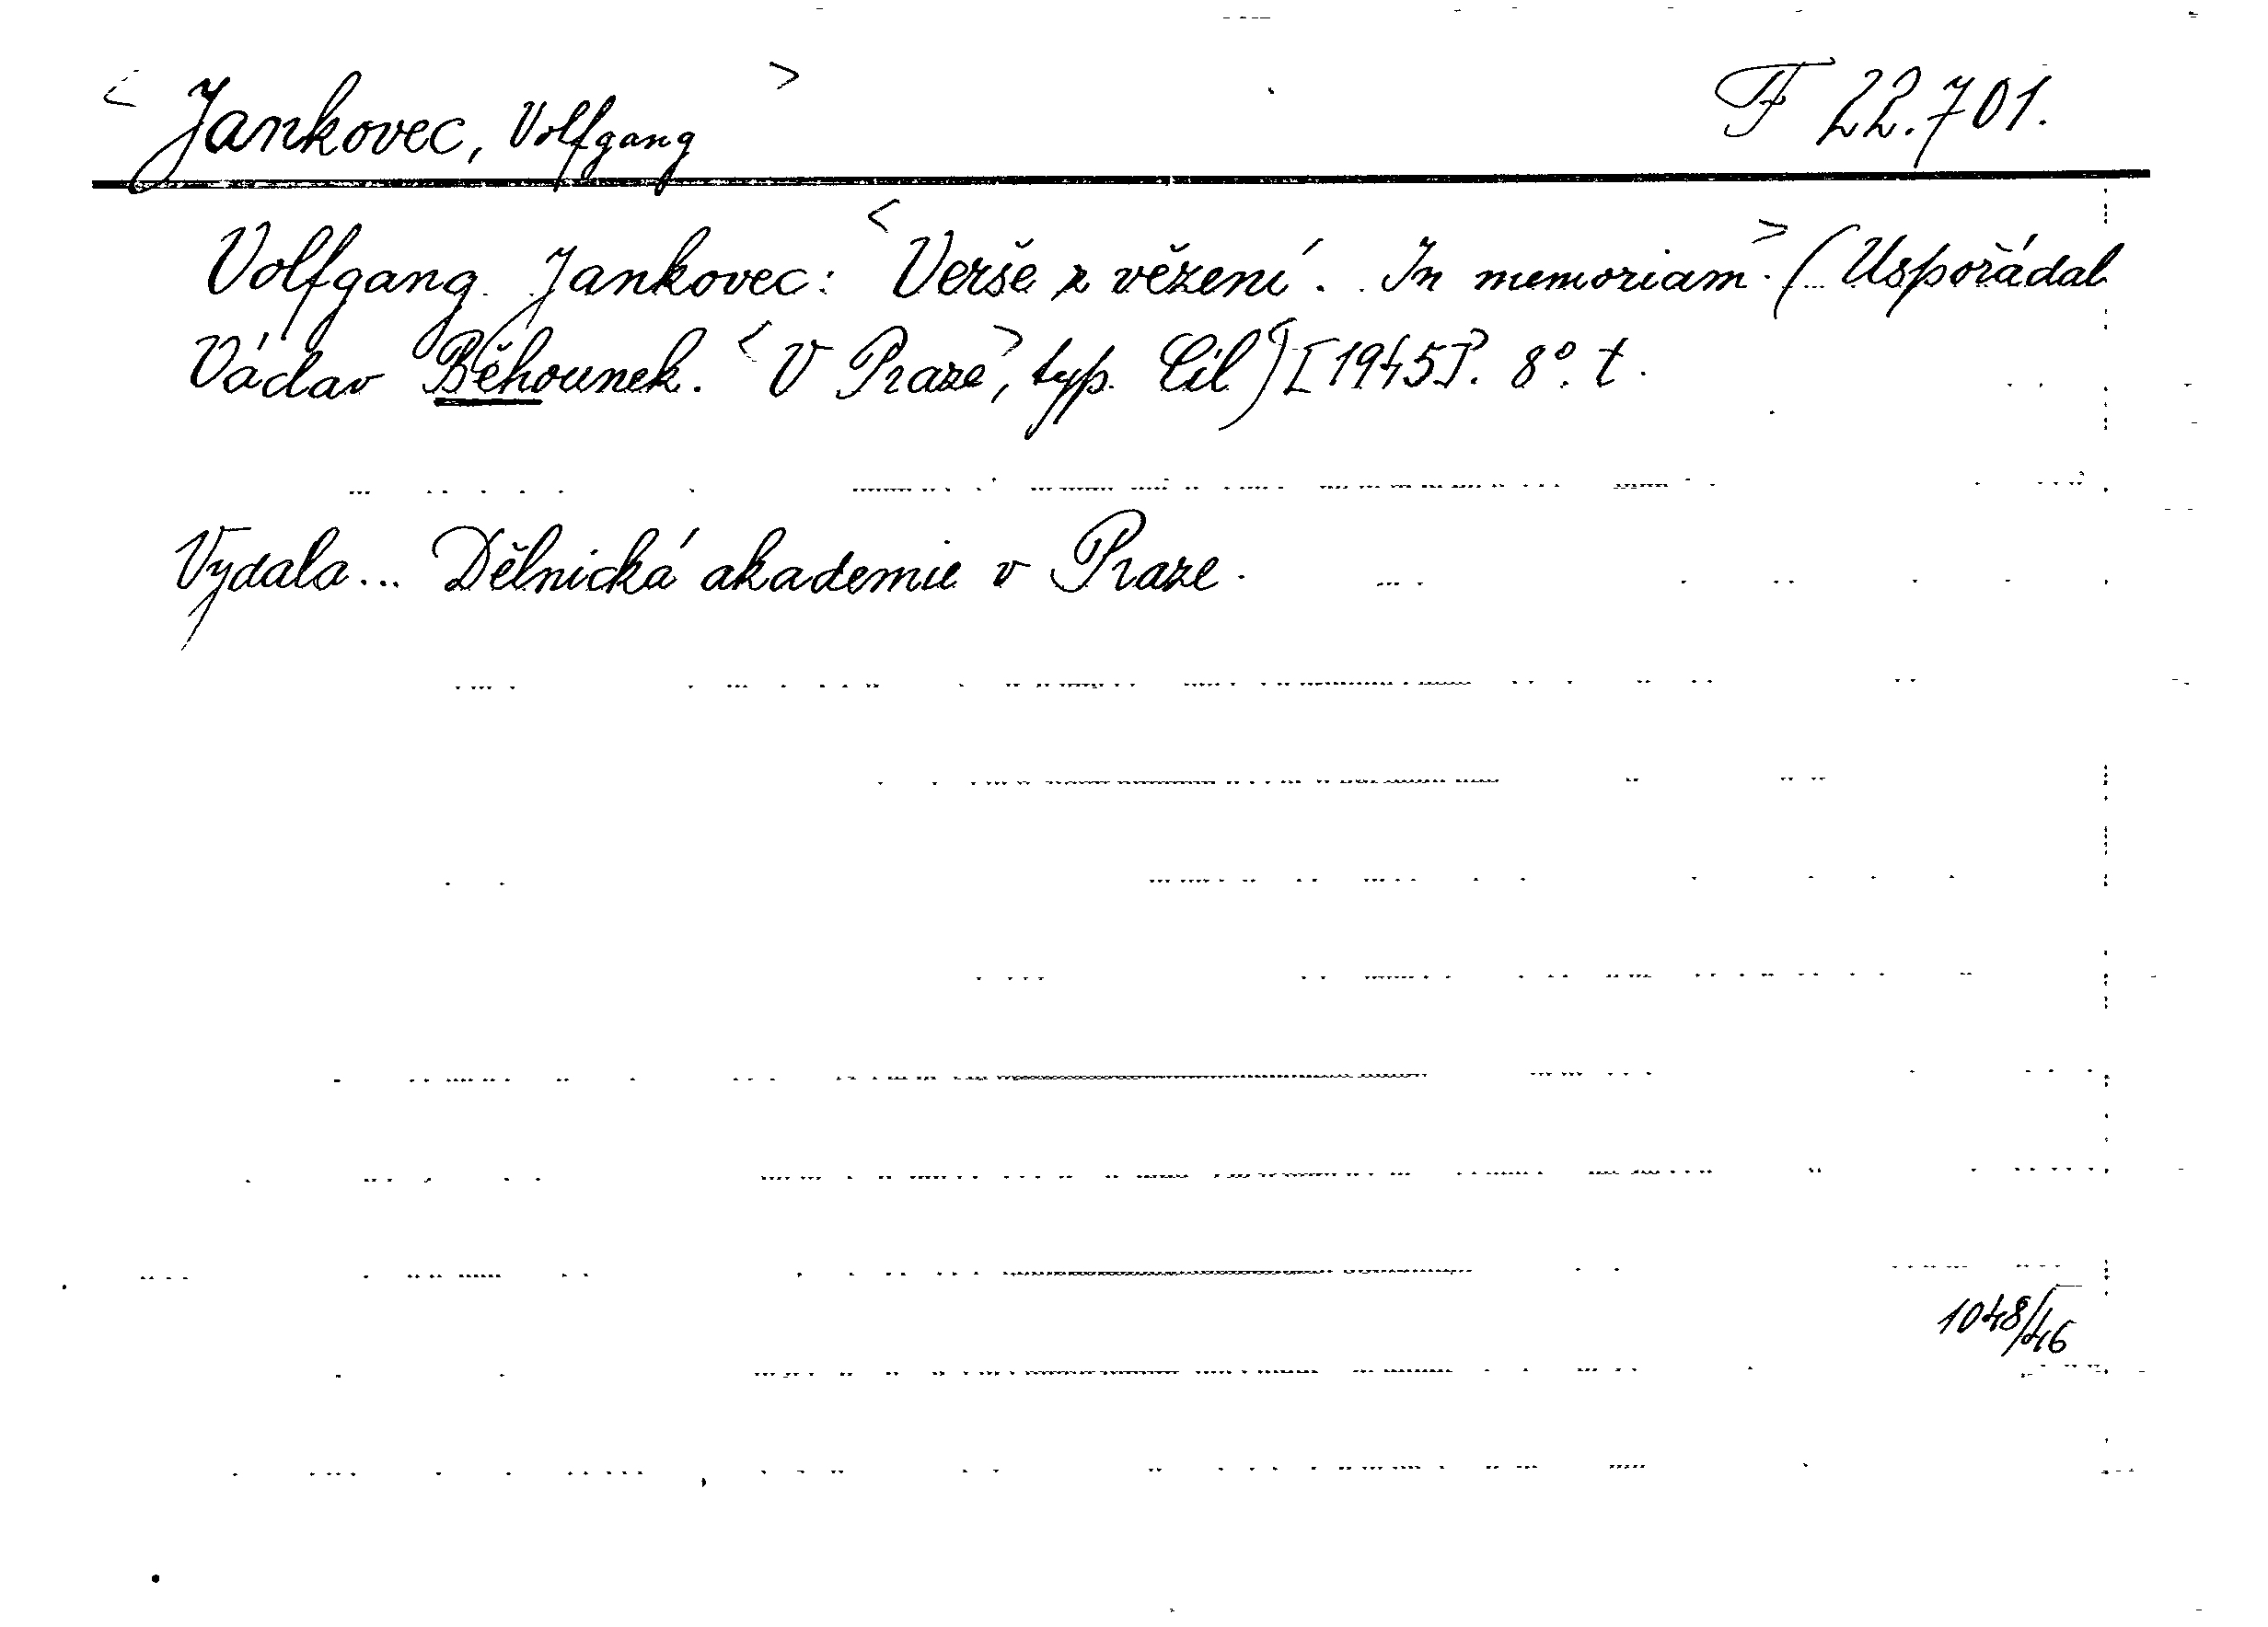 < Jankovec, Volfgang > F 22.701.
Volfgang Jankovec: < Verše z vězení. In memoriam > . (Uspořádal
Václav Běhounek. < V Praze >, typ. Cíl) [1945]. 8°. t.
Vydala... Dělnická akademie v Praze.
1048/46